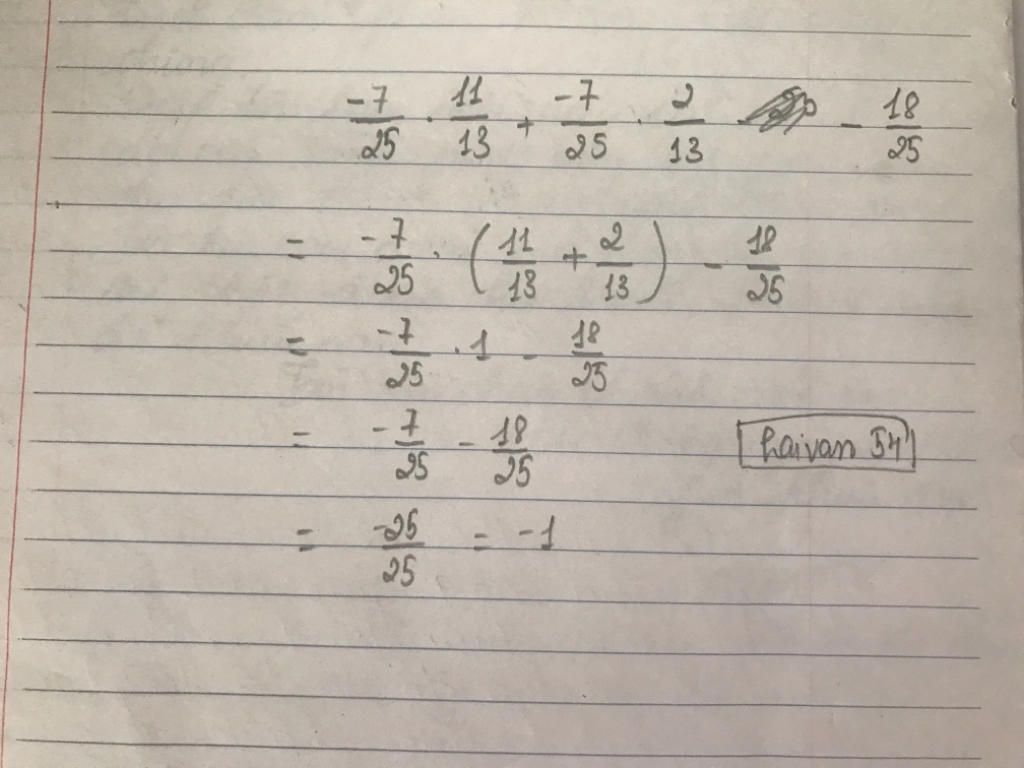 -7/25 . 11/13 + -7/25 . 2/13 - 18/25
= -7/25 . (11/13 + 2/13) - 18/25
= -7/25 . 1 - 18/25
= -7/25 - 18/25
haivan 54
= -25/25 = -1